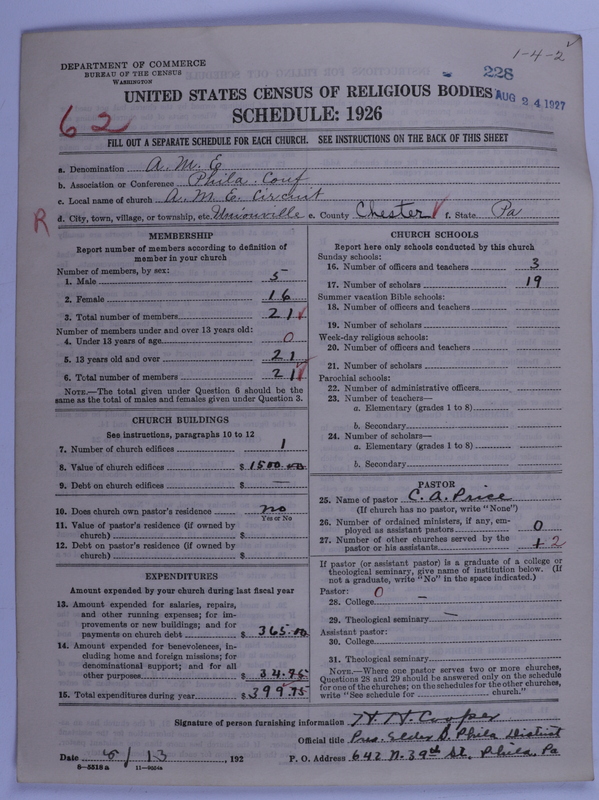 1-4-2
DEPARTMENT OF COMMERCE
BUREAU OF THE CENSUS
WASHINGTON
228
AUG 24 1927
UNITED STATES CENSUS OF RELIGIOUS BODIES
SCHEDULE: 1926
62
FILL OUT A SEPARATE SCHEDULE FOR EACH CHURCH. SEE INSTRUCTIONS ON THE BACK OF THIS SHEET
a. Denomination A. M. E
b. Association or Conference Phila. Conf
c. Local name of church A. M. E. Circuit
R
d. City, town, village, or township, etc. Unionville e. County Chester f. State Pa
MEMBERSHIP
Report number of members according to definition of
member in your church
Number of members, by sex:
1. Male 5
2. Female 16
3. Total number of members 21
Number of members under and over 13 years old:
4. Under 13 years of age 0
5. 13 years old and over 21
6. Total number of members 21
NOTE.—The total given under Question 6 should be the
same as the total of males and females given under Question 3.
CHURCH BUILDINGS
See instructions, paragraphs 10 to 12
7. Number of church edifices 1
8. Value of church edifices $ 1500.00
9. Debt on church edifices $ —
10. Does church own pastor's residence no
Yes or No
11. Value of pastor's residence (if owned by
church) $
12. Debt on pastor's residence (if owned by
church) $
EXPENDITURES
Amount expended by your church during last fiscal year
13. Amount expended for salaries, repairs,
and other running expenses; for im-
provements or new buildings; and for
payments on church debt $ 365.00
14. Amount expended for benevolences, in-
cluding home and foreign missions; for
denominational support; and for all
other purposes $ 34.95
15. Total expenditures during year $ 399.95
CHURCH SCHOOLS
Report here only schools conducted by this church
Sunday schools:
16. Number of officers and teachers 3
17. Number of scholars 19
Summer vacation Bible schools:
18. Number of officers and teachers
19. Number of scholars
Week-day religious schools:
20. Number of officers and teachers
21. Number of scholars
Parochial schools:
22. Number of administrative officers
23. Number of teachers—
a. Elementary (grades 1 to 8)
b. Secondary
24. Number of scholars—
a. Elementary (grades 1 to 8)
b. Secondary
PASTOR
25. Name of pastor C. A. Price
(If church has no pastor, write "None")
26. Number of ordained ministers, if any, em-
ployed as assistant pastors 0
27. Number of other churches served by the
pastor or his assistants 1 2
If pastor (or assistant pastor) is a graduate of a college or
theological seminary, give name of institution below. (If
not a graduate, write "No" in the space indicated.)
Pastor: 0
28. College —
29. Theological seminary —
Assistant pastor:
30. College
31. Theological seminary
NOTE.—Where one pastor serves two or more churches,
Questions 28 and 29 should be answered only on the schedule
for one of the churches; on the schedules for the other churches,
write "See schedule for church."
Signature of person furnishing information H. H. Cooper
Official title Pres. Elder Phila District
Date 5/13, 192 P. O. Address 642 N. 39th St. Phila. Pa
8-5518a 11-9664a